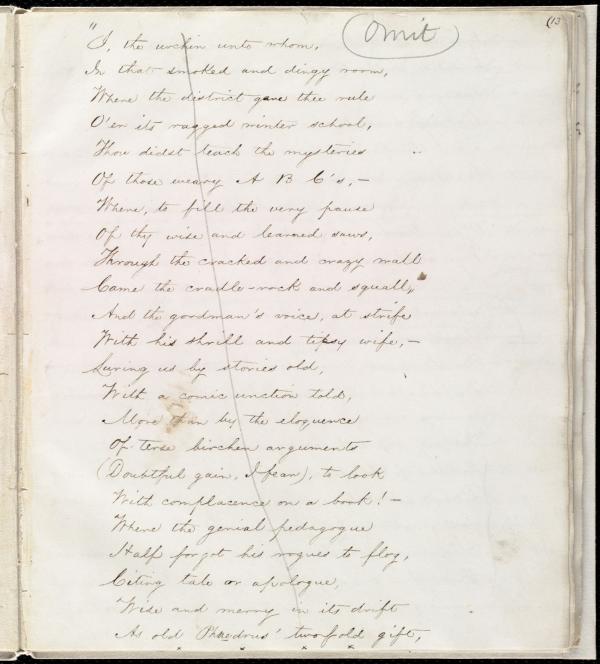 (13
Omit
"I, the urchin unto whom,
In that smoked and dingy room,
Where the district gave thee rule
O'er its ragged winter school,
Thou didst teach the mysteries
Of those weary A B C's,—
Where, to fill the very pause
Of thy wise and learned saws,
Through the cracked and crazy wall
Came the cradle-rock and squall,
And the goodman's voice, at strife
With his shrill and tipsy wife,—
Luring us by stories old,
With a comic unction told,
More than by the eloquence
Of terse birchen arguments
(Doubtful gain, I fear), to look
With complacence on a book!—
Where the genial pedagogue
Half forgot his rogues to flog,
Citing tale or apologue,
Wise and merry in its drift
As old Phaedrus' twofold gift,
x x x x